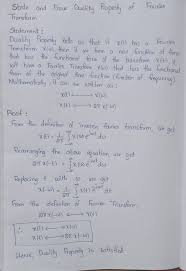 State and Prove Duality Property of Fourier
Transform
Statement :
Duality Property tells us that if x(t) has a Fourier
Transform X(ω), then if we form a new function of time
that has the functional form of the transform X(t), it
will have a Fourier Transform x(ω) that has the functional
form of the original time function (function of frequency)
Mathematically, it can be written as:
x(t) ⟷ X(ω)
X(t) ⟷ 2π x(-ω)
Proof :
From the definition of inverse Fourier transform, we get
x(t) = 1/2π ∫ X(ω) e^jωt dω
Rearranging the above equation we get
2π x(-t) = ∫ X(ω) e^-jωt dω
Replacing t with ω we get
From the definition of Fourier Transform
∴ x(t) ⟷ X(ω)
X(t) ⟷ 2π x(-ω)
Hence, Duality Property is Satisfied